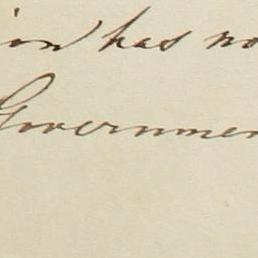 ion has no
Governmen